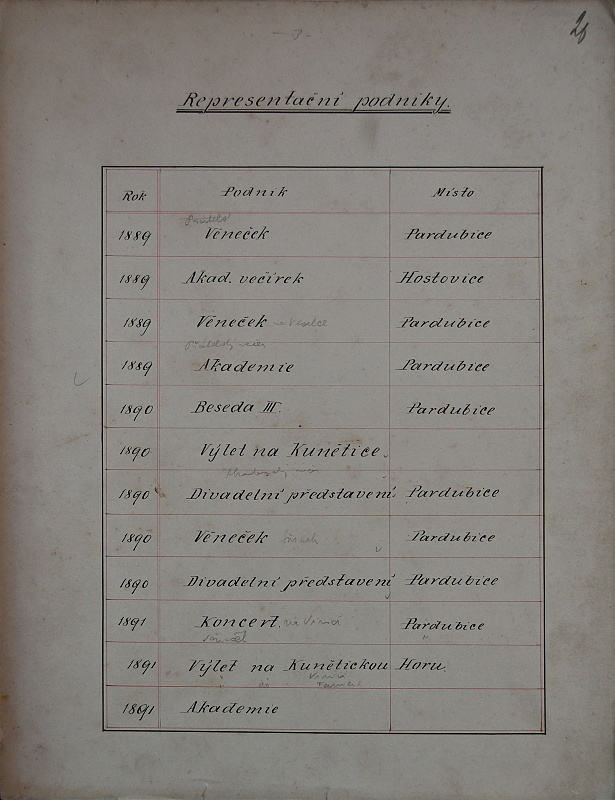 26
Representační podniky.
Rok Podnik Místo
1889 Věneček Pardubice
1889 Akad. večírek Hostovice
1889 Věneček Pardubice
1889 Akademie Pardubice
1890 Beseda III. Pardubice
1890 Výlet na Kunětice.
1890 Divadelní představení Pardubice
1890 Věneček Pardubice
1890 Divadelní představení Pardubice
1891 Koncert Pardubice
1891 Výlet na Kunětickou Horu.
1891 Akademie